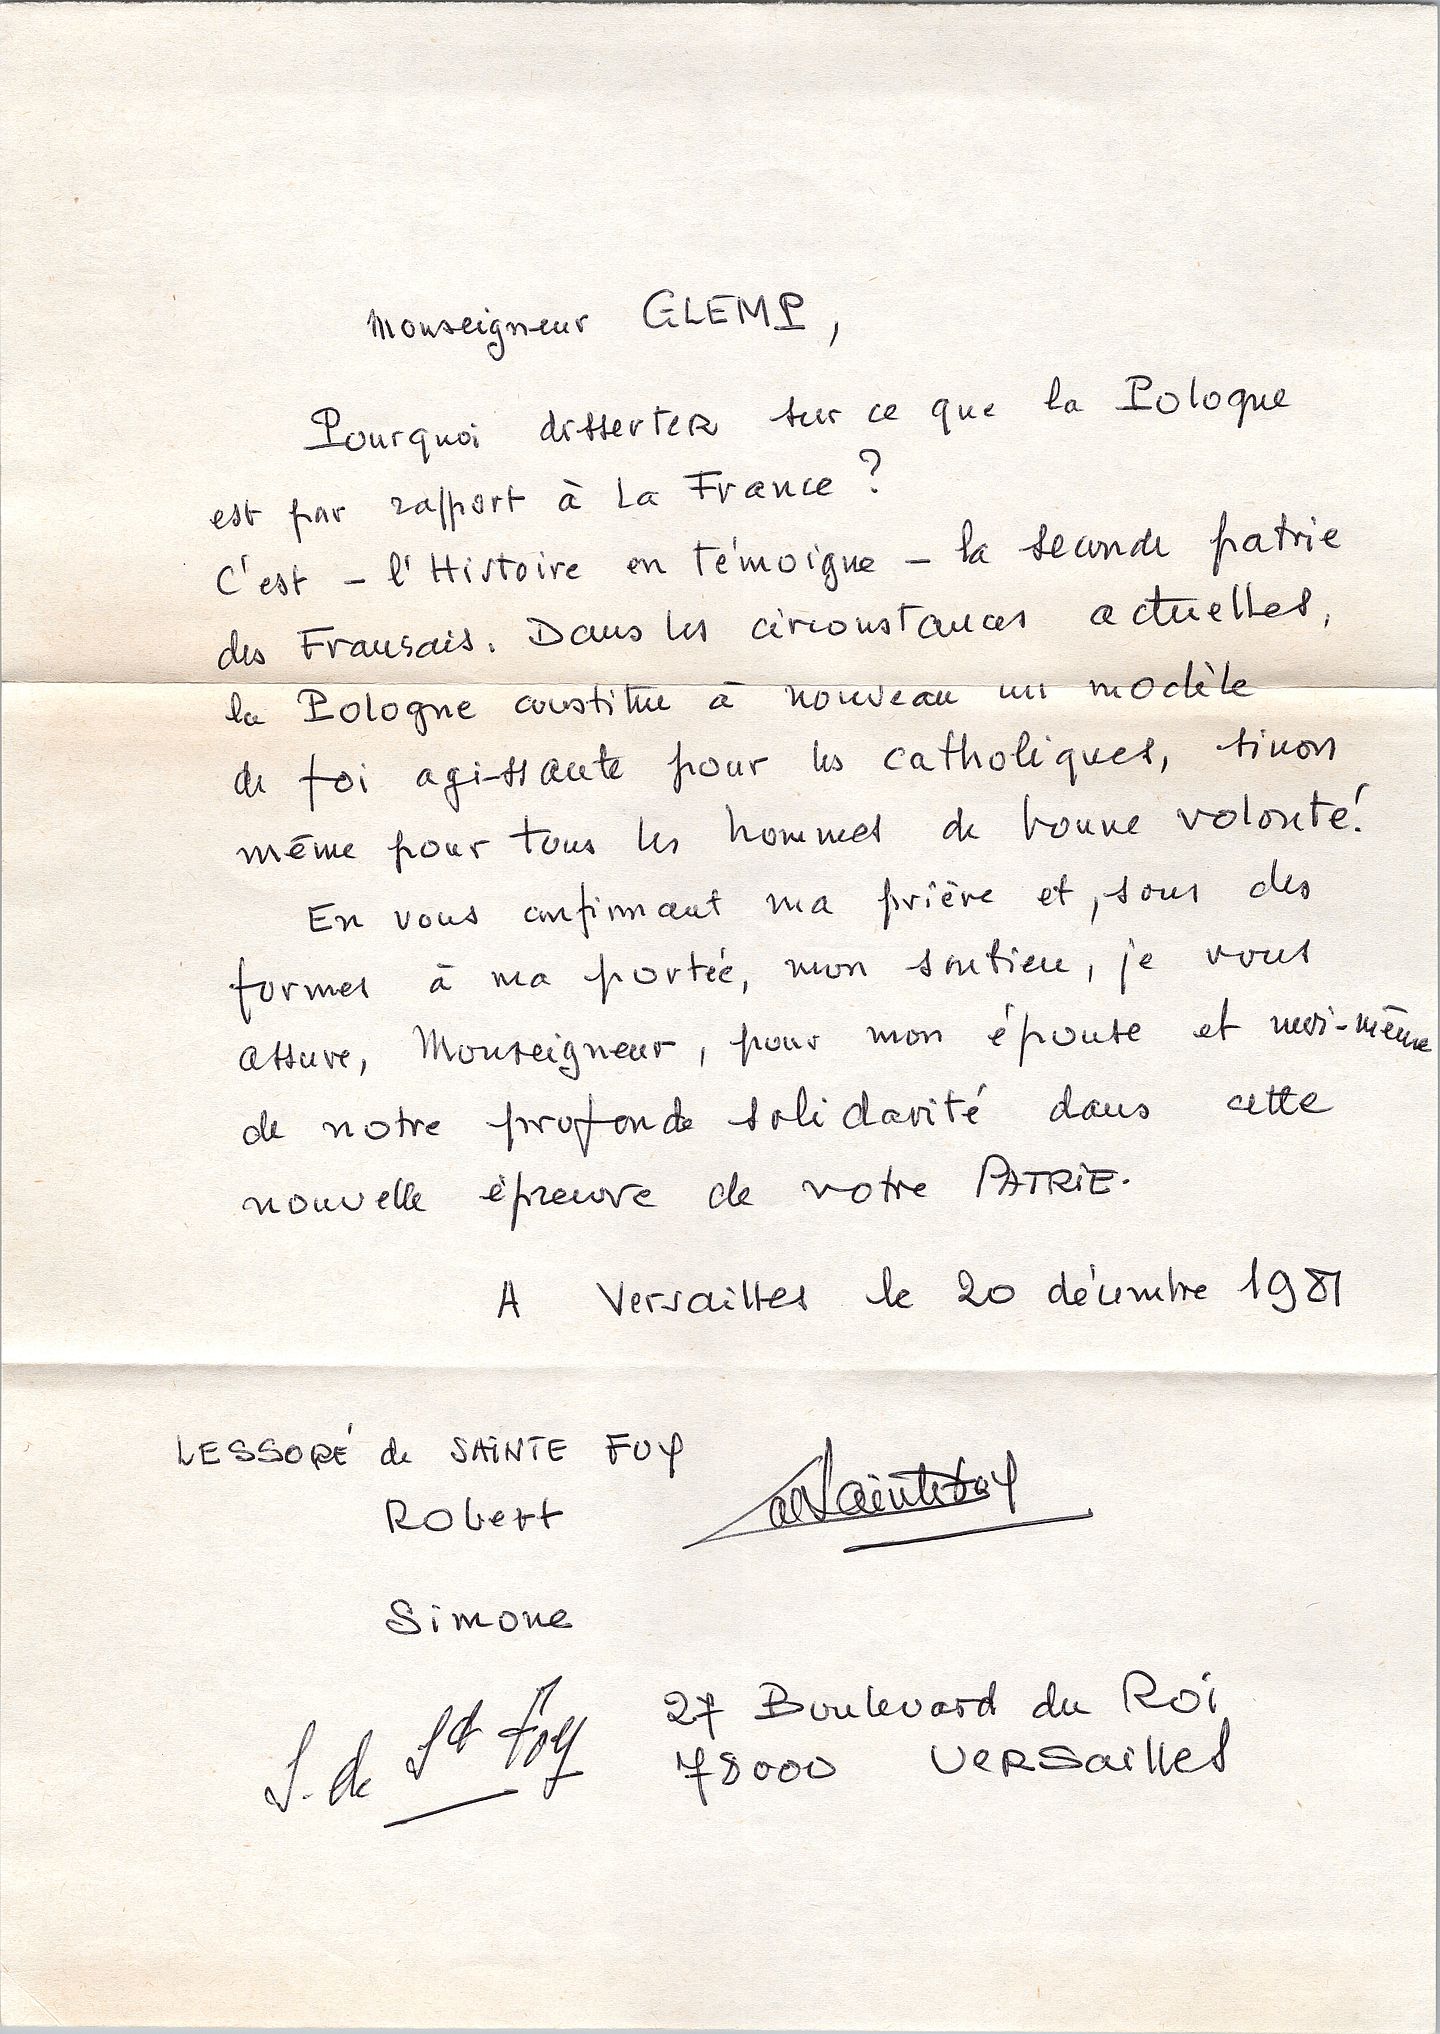 Monseigneur GLEMP,
Pourquoi disserter sur ce que la Pologne
est par rapport à la France ?
C'est - l'Histoire en témoigne - la seconde patrie
des Français. Dans les circonstances actuelles,
la Pologne constitue à nouveau un modèle
de foi agissante pour les catholiques, sinon
même pour tous les hommes de bonne volonté !
En vous confirmant ma prière et, sous des
formes à ma portée, mon soutien, je vous
assure, Monseigneur, pour mon épouse et moi-même
de notre profonde solidarité dans cette
nouvelle épreuve de votre PATRIE.
A Versailles le 20 décembre 1981
LESSORÉ de SAINTE FOY
Robert
de Sainte Foy
Simone
S. de Ste Foy
27 Boulevard du Roi
78000 Versailles